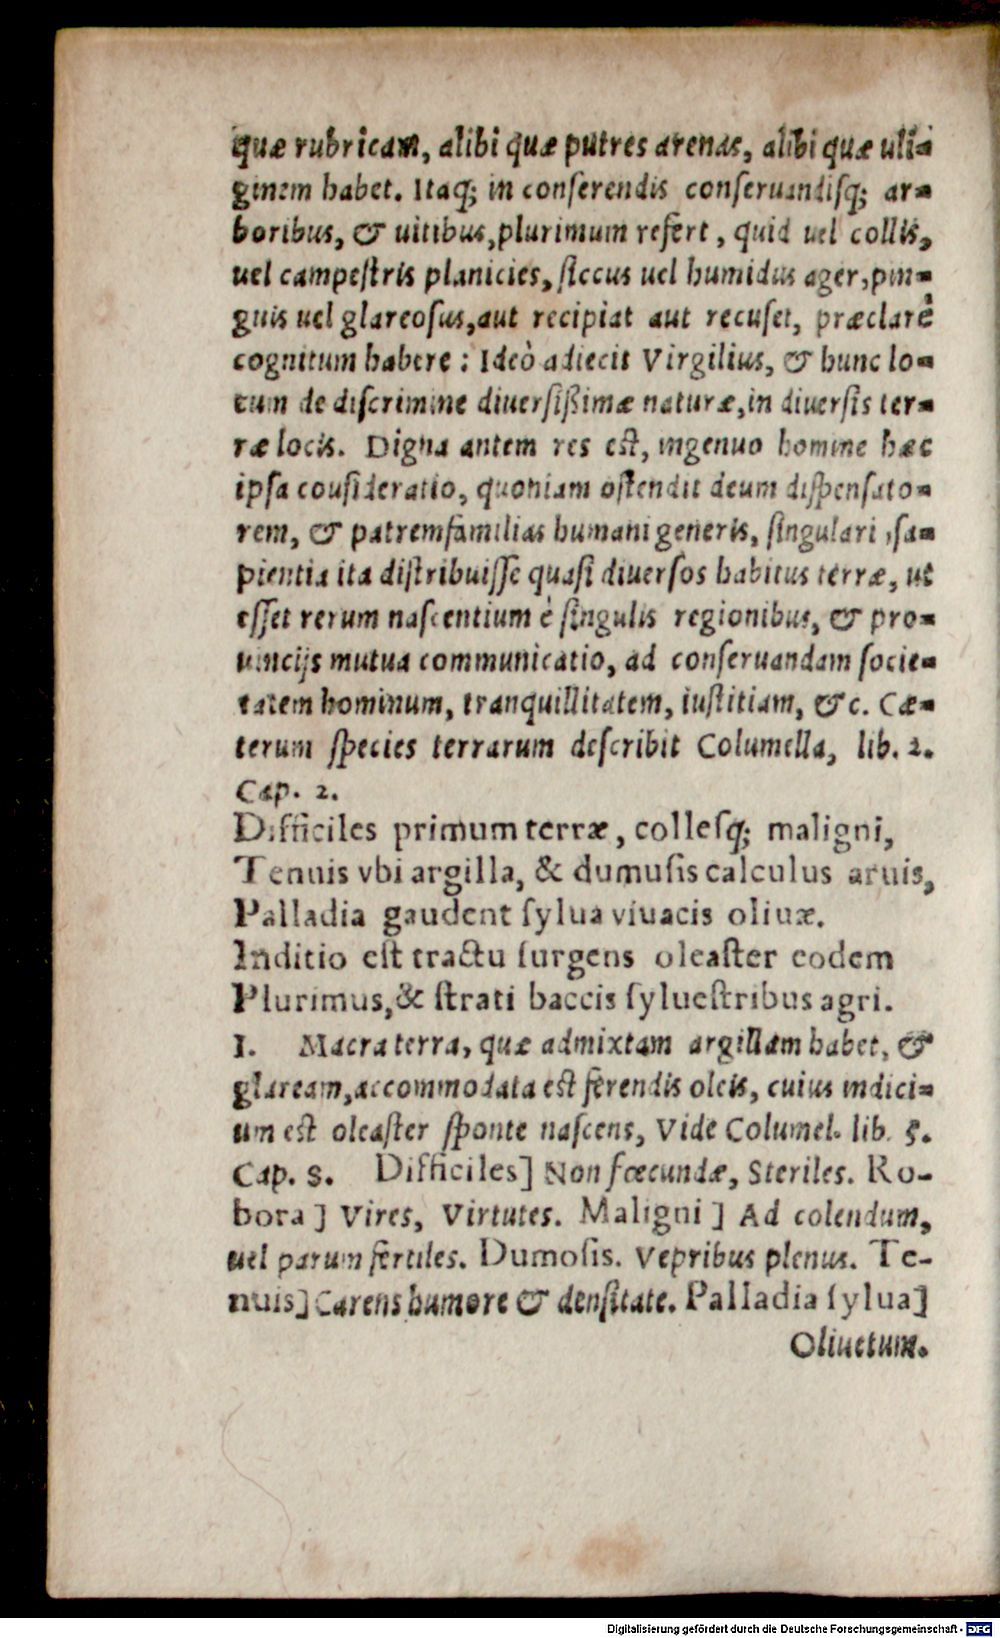 quæ rubricam, alibi quæ putres arenas, alibi quæ uli-
ginem habet. Itaq; in conserendis conseruandisq; ar-
boribus, & uitibus, plurimum refert, quid uel collis,
uel campestris planicies, siccus uel humidus ager, pin-
guis uel glareosus, aut recipiat aut recuset, præclarè
cognitum habere: Ideò adiecit Virgilius, & hunc lo-
cum de discrimine diuersißimæ naturæ, in diuersis ter-
ræ locis. Digna antem res est, ingenuo homine hæc
ipsa cousideratio, quoniam ostendit deum dispensato-
rem, & patremfamilias humani generis, singulari, sa-
pientia ita distribuisse quasi diuersos habitus terræ, ut
esset rerum nascentium è singulis regionibus, & pro-
uincijs mutua communicatio, ad conseruandam socie-
tatem hominum, tranquillitatem, iustitiam, &c. Cæ-
terum species terrarum describit Columella, lib. 2.
Cap. 2.
Difficiles primum terræ, collesq; maligni,
Tenuis vbi argilla, & dumusis calculus aruis,
Palladia gaudent sylua viuacis oliuæ.
Inditio est tractu surgens oleaster eodem
Plurimus, & strati baccis syluestribus agri.
I. Macra terra, quæ admixtam argillam habet, &
glaream, accommodata est ferendis oleis, cuius indici-
um est oleaster sponte nascens, Vide Columel. lib. 5.
Cap. 8. Difficiles] Non fœcundæ, Steriles. Ro-
bora] Vires, Virtutes. Maligni] Ad colendum,
uel parum fertiles. Dumosis. Vepribus plenus. Te-
nuis] Carens humore & densitate. Palladia sylua]
Oliuetum.
Digitalisierung gefördert durch die Deutsche Forschungsgemeinschaft - DFG